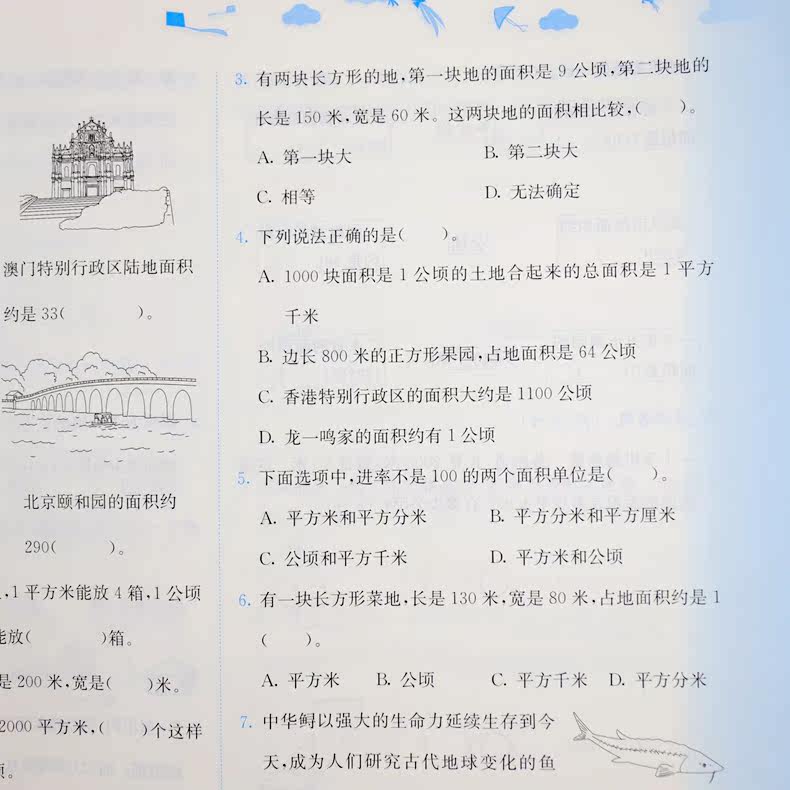 澳门特别行政区陆地面积
约是 33(　　)。
北京颐和园的面积约
290(　　)。
,1 平方米能放 4 箱,1 公顷
能放(　　)箱。
是 200 米,宽是(　　)米。
2000 平方米,(　　)个这样
3. 有两块长方形的地,第一块地的面积是 9 公顷,第二块地的
长是 150 米,宽是 60 米。这两块地的面积相比较,(　　)。
A. 第一块大　　B. 第二块大
C. 相等　　D. 无法确定
4. 下列说法正确的是(　　)。
A. 1000 块面积是 1 公顷的土地合起来的总面积是 1 平方
千米
B. 边长 800 米的正方形果园,占地面积是 64 公顷
C. 香港特别行政区的面积大约是 1100 公顷
D. 龙一鸣家的面积约有 1 公顷
5. 下面选项中,进率不是 100 的两个面积单位是(　　)。
A. 平方米和平方分米　　B. 平方分米和平方厘米
C. 公顷和平方千米　　D. 平方米和公顷
6. 有一块长方形菜地,长是 130 米,宽是 80 米,占地面积约是 1
(　　)。
A. 平方米　B. 公顷　　C. 平方千米　D. 平方分米
7. 中华鲟以强大的生命力延续生存到今
天,成为人们研究古代地球变化的鱼